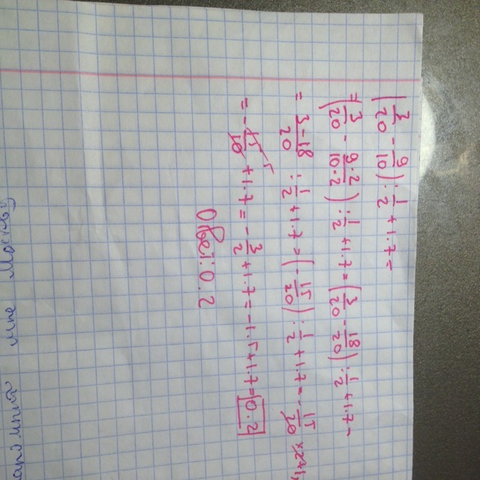 (3/20 - 9/10) : 1/2 + 1.7 =
= (3/20 - 9·2/10·2) : 1/2 + 1.7 = (3/20 - 18/20) : 1/2 + 1.7 =
= 3-18/20 : 1/2 + 1.7 = (-15/20) : 1/2 + 1.7 = -15/20 ×2+1,
= -15/10 + 1.7 = -3/2 + 1.7 = -1.5 + 1.7 = 0.2
Ответ: 0.2
мне Москвы